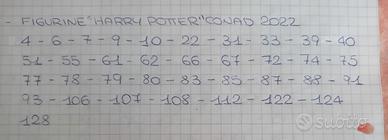 - FIGURINE "HARRY POTTER" CONAD 2022
4 - 6 - 7 - 9 - 10 - 22 - 31 - 33 - 39 - 40
51 - 55 - 61 - 62 - 66 - 67 - 72 - 74 - 75
77 - 78 - 79 - 80 - 83 - 85 - 87 - 88 - 91
93 - 106 - 107 - 108 - 112 - 122 - 124
128
subito